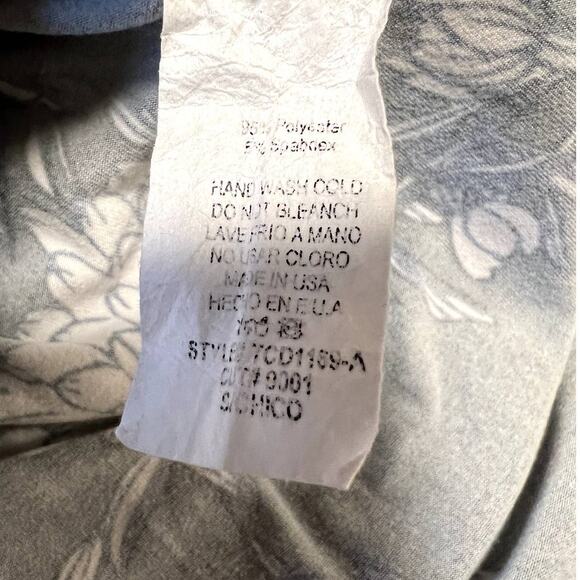 95% Polyester
5% Spandex
HAND WASH COLD
DO NOT BLEANCH
LAVE FRIO A MANO
NO USAR CLORO
MADE IN USA
HECHO EN E.U.A
STYLE# 7CD1169-A
CUT# 9061
S/CHICO